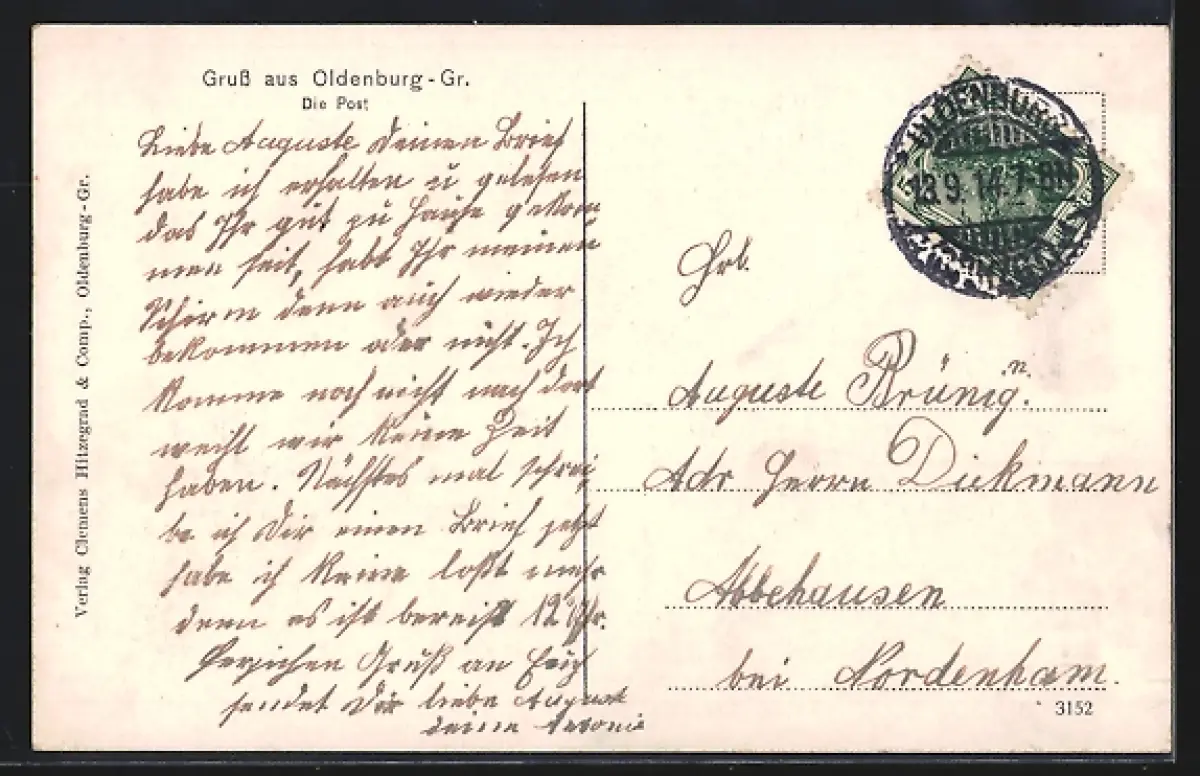 Gruß aus Oldenburg-Gr.
Die Post
Liebe Auguste deinen Brief
habe ich erhalten u gelesen
das Ihr gut zu Hause gekom
men seit, habt Ihr meinen
Schirm denn auch wieder
bekommen oder nicht. Ich
komme noch nicht nach dort
weihl wir keine Zeit
haben. Nächstes mal schrei,
be ich Dir einen Brief jetzt
habe ich keine lost mehr
denn es ist bereist 12 Uhr.
Gruß an Euch
sendet Dir liebe August
deine
Verlag Clemens Hitzegrad & Comp., Oldenburg-Gr.
OLDENBURG
13.9.14.7-8N
Frl.
Auguste Brünig.
n
Adr Herrn Dickmann
Abbehausen
bei Nordenham.
3152